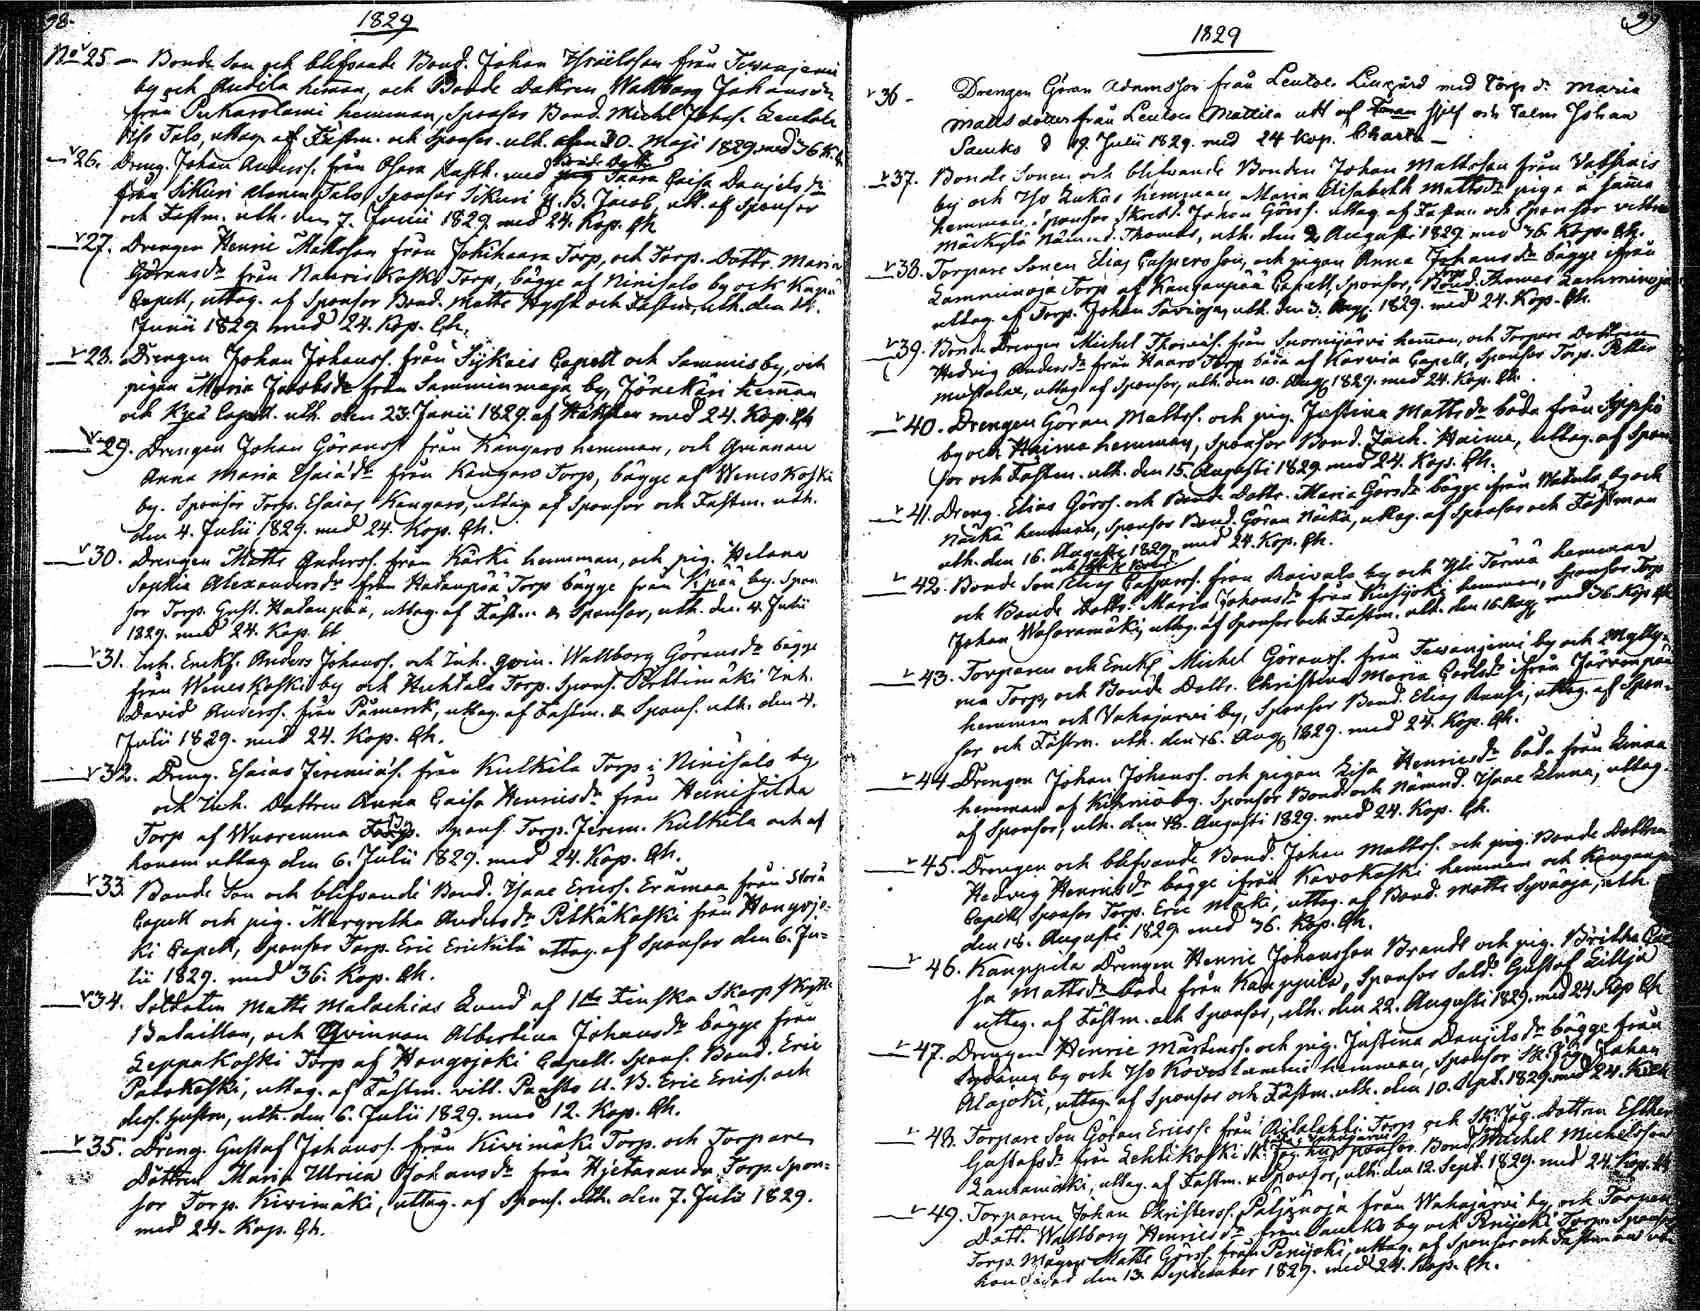 98.
1829
No 25 — Bonde Son och blifvande Bond. Johan Israelsson från Tewanjemi
by och Anttila heman, och Bonde dottren Wallborg Johansdr
från Pukarolami hemman, Sponsor Bond. Michl Johss. Leutola
Iso Talo, uttag. af Fästm. och Sponsor. utk. den 30. Maji 1829. med 36 K.
26. Dreng. Johan Anderss. från Osara Rusth. med Caisa Danjelsdr
från Sikuri Talo, Sponsor Sikuri Jacob, utt. af Sponsor
och Fästm. utk. den 7. Junii 1829 med 24. Kop. Ch
27. Drengen Henric Mattsson från Jokihaara Torp, och Torp. Dottr. Maria
Göransdr från Torp, bägge af Ninisalo by och
Capell, uttag. af Sponsor Bond. Matts och Fästm, utk. den
Junii 1829 med 24. Kop. Ch.
28. Drengen Johan Johanss. från Sykais Capell och Sammis by, och
pigan Maria Jacobsdr från Samminmaja by, hemman
och Capell. utk. den 23. Junii 1829. af med 24. Kop. Ch
29. Drengen Johan Göranss från Kangaro hemman, och Qvinnan
Anna Maria Esaiædr från Kangaro Torp, bägge af Weneskoski
by. Sponsor Torp. Esaias Kangaro, uttag. af Sponsor och Fästm. utk.
den 4. Julii 1829. med 24. Kop. Ch.
30. Drengen Matts Anderss. från Kärki hemman, och pig. Helena
Sophia Alexandersdr från Hadanpää Torp bägge från by. Spon
sor Torp. Gust. Hadanpää, uttag. af Fästm. & Sponsor, utk. den 4. Julii
1829. med 24. Kop. Ch
31. Inh. Enckl. Anders Johanss. och Inh. qvin. Wallborg Göransdr bägge
från Weneskoski by och Huhtala Torp. Spons. Perttimäki Inh.
David Anderss. från Påmark, uttag. af Fästm. & Spons. utk. den 4.
Julii 1829. med 24. Kop. Ch.
32. Dreng. Esaias Jeremiæs. från Kulkila Torp i Ninisalo by
och Inh. Dottren Anna Caisa Henricsdr från Heinisilda
Torp af Wuorenma by. Spons. Torp. Jerem. Kulkila och af
honom uttag. den 6. Julii 1829. med 24. Kop. Ch.
33. Bonde Son och blifvande Bond. Isaac Ericss. Erämaa från Storå
Capell och pig. Margretha Andersdr Pitkäkoski från Hongojo-
ki Capell, Sponsor Torp. Eric Erickilä uttag. af Sponsor den 6. Ju-
lii 1829. med 36. Kop. Ch.
34. Soldaten Matts Malachias Lund af 1sta Finska Skarp Skytt
Bataillon, och Qvinnan Albertina Johansdr bägge från
Leppäkoski Torp af Hongojoki Capell. Spons. Bond. Eric
Palokoski, uttag. af Fästm. vitt. Eric Ericss. och
dess. hustru, utk. den 6. Julii 1829. med 12. Kop. Ch.
35. Dreng. Gustaf Johanss. från Kivimäki Torp. och Torpare
Dottren Maria Ulrica Johansdr från Hjetaranda Torp. Spon-
sor Torp. Kivimäki, uttag. af Spons. utk. den 7. Julii 1829.
med 24. Kop. Ch.
99
1829
36 — Drengen Göran Adamsson från Leutola med Torp. dr Maria
Matts dotter från Leutola Mattila utt af sjelf och Johan
Samko d 19. Julii 1829. med 24 Kop. Charta —
37. Bonde Sonen och blifvande Bonden Johan Mattsson från
by och Iso Lukas hemman, Maria Elisabeth Mattsdr piga å samma
hemman. Sponsor Johan Görss. uttag. af Fästm. och Sponsor vittne
Mäckylä Nämnd. Thomas, utk. den 2 Augusti 1829. med 36. Kop. Ch.
38. Torpare Sonen Elias Caspersson, och pigan Anna Johansdr bägge ifrån
Lamminoja Torp af Kangan­pää Capell, Sponsor, Bond. Thomas Lamminoja
uttag. af Torp. Johan Savioja, utk. den 3. Aug. 1829. med 24. Kop. Ch.
39. Bonde Drengen Michel Thomæs. från Suomijärvi heman, och Torpare Dottren
Hedvig Andersdr från Haaro Torp båda af Karvia Capell, Sponsor Torp. Petter
Mustalax, uttag. af Sponsor, utk. den 10. Aug. 1829. med 24. Kop. Ch.
40. Drengen Göran Mattss. och pig. Justina Mattsdr båda från
by och Haima hemman, Sponsor Bond. Zach. Haima, uttag. af Spon
sor och Fästm. utk. den 15. Augusti 1829 med 24. Kop. Ch.
41. Dreng. Elias Görss. och Bonde Dottr. Maria Görsdr bägge från Watula by och
Näckä hemman, Sponsor Bond. Göran Näckä, uttag. af Sponsor och Fästman
utk. den 16. Augusti 1829 med 24. Kop. Ch.
42. Bonde Son Elias Casparss. från Raivala by och Yli Törmä hemman
och Bonde Dottr. Maria Johansdr från hemman, Sponsor Torp.
Johan Wasaramäki, uttag. af Sponsor och Fästm. utk. den 16. Aug. med 36. Kop. Ch
43. Torparen och Enckl. Michel Göranss. från Tewanjemi by och Mylly-
ma Torp, och Bonde Dottr. Christina Maria Carlsdr ifrån Järvenpää
hemman och Vahajarvi by, Sponsor Bond. Elias, uttag. af Spon-
sor och Fästm. utk. den 16. Aug. 1829. med 24. Kop. Ch.
44. Drengen Johan Johanss. och pigan Lisa Henricsdr båda från Linna
hemman af Kihniö by. Sponsor Bond. och Nämnd. Isaac Linna, uttag.
af Sponsor, utk. den 18. Augusti 1829. med 24. Kop. Ch.
45. Drengen och blifvande Bond. Johan Mattss. och pig. Bonde Dottren
Hedvig Henricsdr bägge ifrån Kavokoski hemman och Kanganpä
Capell, Sponsor Torp. Eric Mäki, uttag. af Bond. Matts Syväoja, utk.
den 18. Augusti 1829. med 36. Kop. Ch.
46. Kauppila Drengen Henric Johansson Brandt och pig. Britha Cai
sa Mattsdr både från Kauppila, Sponsor Sold. Gustaf Lillja
uttag. af Fästm. och Sponsor, utk. den 22. Augusti 1829. med 24. Kop Ch
47. Drengen Henric Mårtenss. och pig. Justina Danjelsdr bägge från
by och Iso Kovelammi hemman, Sponsor Sk. Jäg. Johan
Alajoki, uttag. af Sponsor och Fästm. utk. den 10. Sept. 1829. med 24. K. Ch
48. Torpare Son Göran Ericss. från Torp och Sk. Jäg. Dottren Esther
Gustafsdr från Lehtikoski Sponsor. Bond. Michel Michelsson
Lauramäki, uttag. af Fästm. & Sponsor, utk. den 12. Sept. 1829. med 24. Kop. Ch
49. Torparen Johan Christerss. från Wahajärvi by, och Torpare
Dott. Wallborg Henricsdr från Samcko by och Penijoki Torp. Sponsor
Torp. Mågen Matts Görss. från Penijoki, uttag. af Sponsor och Fästmans
den 13. September 1829. med 24. Kop. Ch.